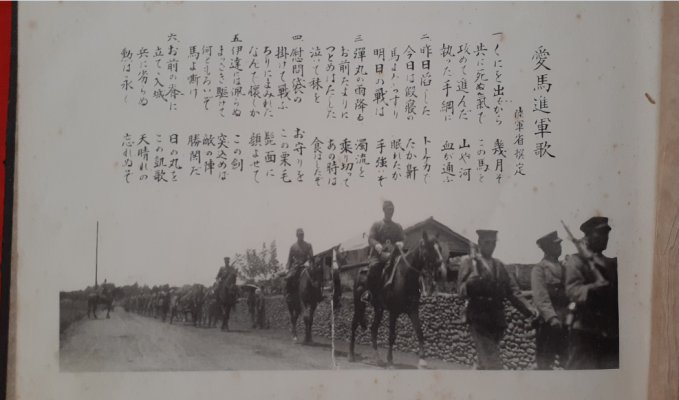 愛馬進軍歌
陸軍省撰定
一 くにを出てから 幾月ぞ
共に死ぬ氣で この馬と
攻めて進んだ 山や河
執った手綱に 血が通ふ
二 昨日陥した トーチカで
今日は假寝の たか鼾
馬よぐっすり 眠れたか
明日の戦は 手強いぞ
三 彈丸の雨降る 濁流を
お前たよりに 乗り切って
つとめはたした あの時は
泣いて秣を 食はしたぞ
四 慰問袋の お守りを
掛けて戰ふ この栗毛
ちりにまみれた 髭面に
なんで懐くか 顔よせて
五 伊達には佩らぬ この剣
まっさき駆けて 突込めば
何ともろいぞ 敵の陣
馬よ嘶け 勝鬨だ
六 お前の脊に 日の丸を
立てて入城 この凱歌
兵に劣らぬ 天晴れの
勲は永く 忘れぬぞ